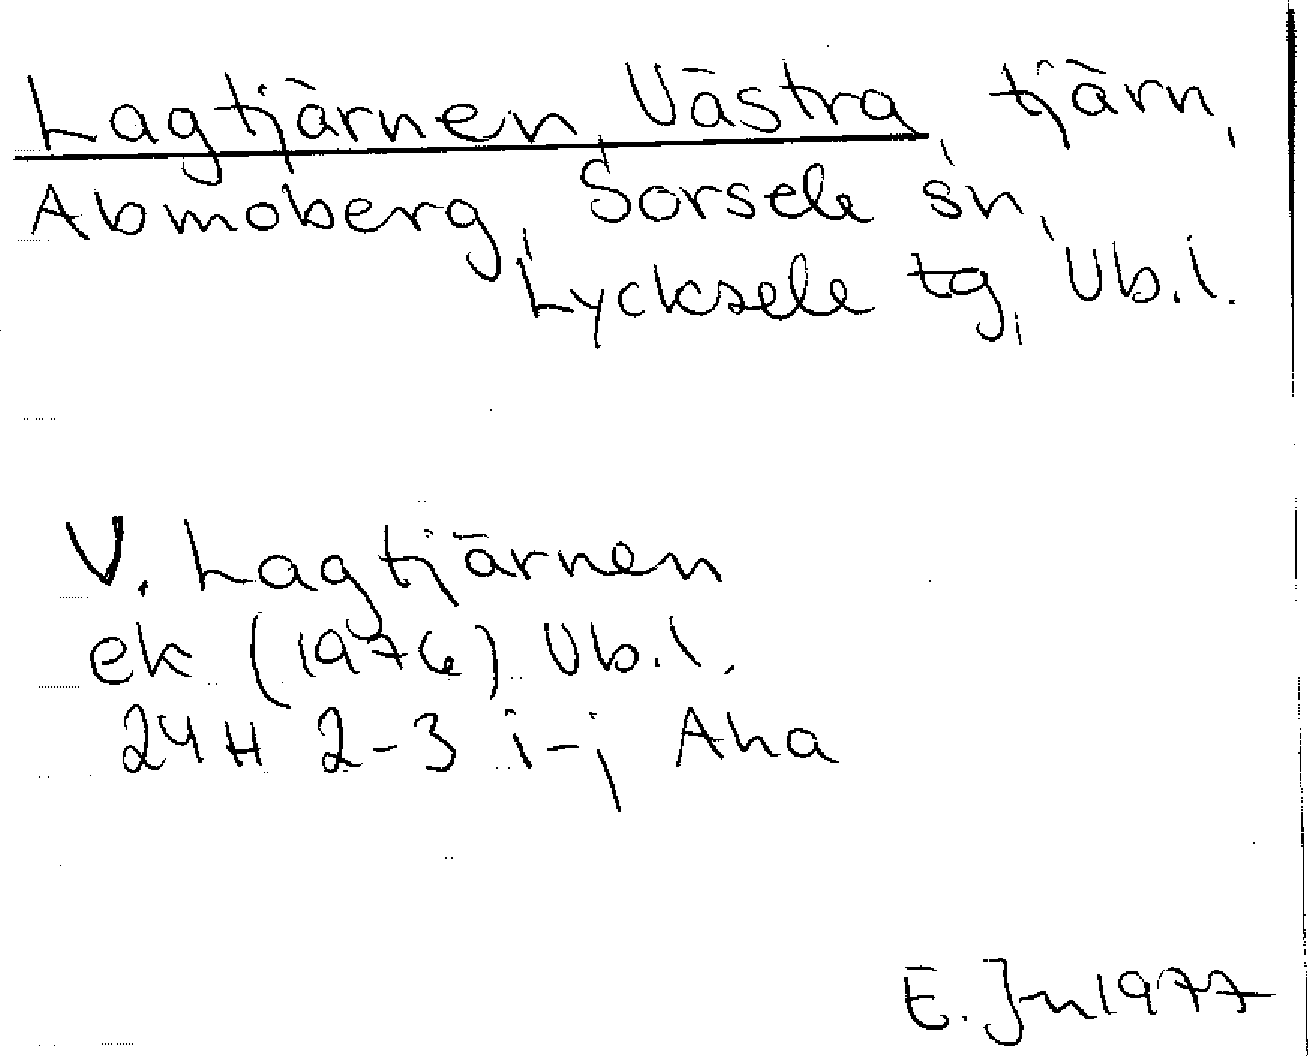 Lagtjärnen, Västra, tjärn,
Abmoberg, Sorsele sn,
Lycksele tg, Vb.l.
V. Lagtjärnen
ek (1976) Vb.l.
24H 2-3 i-j Aha
E. Jn 1977